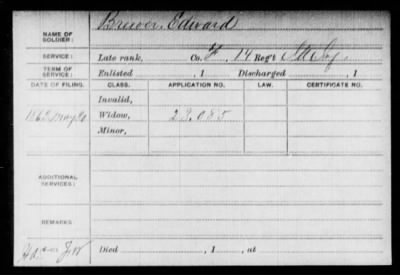 NAME OF SOLDIER: Brewer, Edward
SERVICE: Late rank, Co. F, 14 Reg't
TERM OF SERVICE: Enlisted , 1 Discharged , 1
DATE OF FILING. CLASS. APPLICATION NO. LAW. CERTIFICATE NO.
Invalid,
Widow, 23.085
Minor,
ADDITIONAL SERVICES:
REMARKS
Died , 1 , at